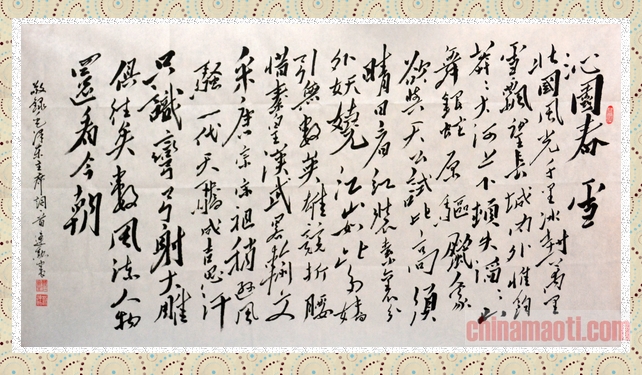 沁園春 雪
北國風光千里冰封萬里
雪飄望長城内外惟餘
莽莽大河上下頓失滔滔山
舞銀蛇原驅蠟象
欲與天公試比高須
晴日看紅裝素裹分
外妖嬈江山如此多嬌
引無數英雄競折腰
惜秦皇漢武略輸文
采唐宗宋祖稍遜風
騷一代天驕成吉思汗
只識彎弓射大雕
俱往矣數風流人物
還看今朝
敬錄毛澤東主席詞首
chinamaoti.com